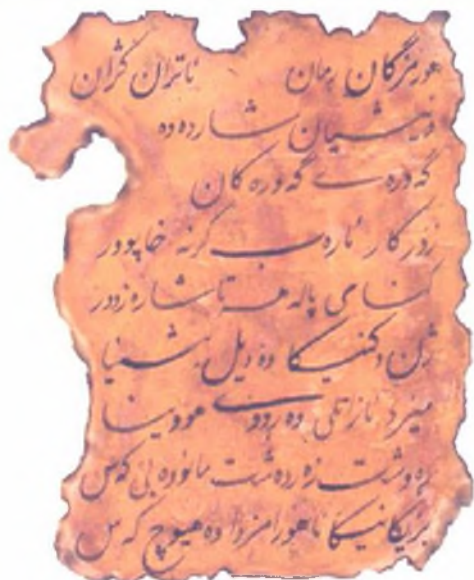 هورمزگان رمان ئاتران کژان
ویشیان شارده وه
گه وره ی گه وره کان
زور کار ئاره ب کرنه خاپوور
گنای پاله هه تا شاره زوور
ژن و کنیکا وه دیل بشینا
میرد ئازا تلی وه رووی هووینا
ره وشت زه رده شت مانوه بی که س
بزیکا نیکا ئاهورامزدا وه هیوچ که س